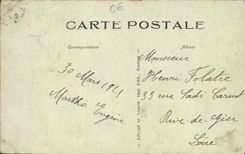 06
CARTE POSTALE
Correspondance
Adresse
30 Mars 1921
Marthe Eugène
Monsieur
Henri Folatre
33 rue Sadi Carnot
Rive-de-Gier
Loire